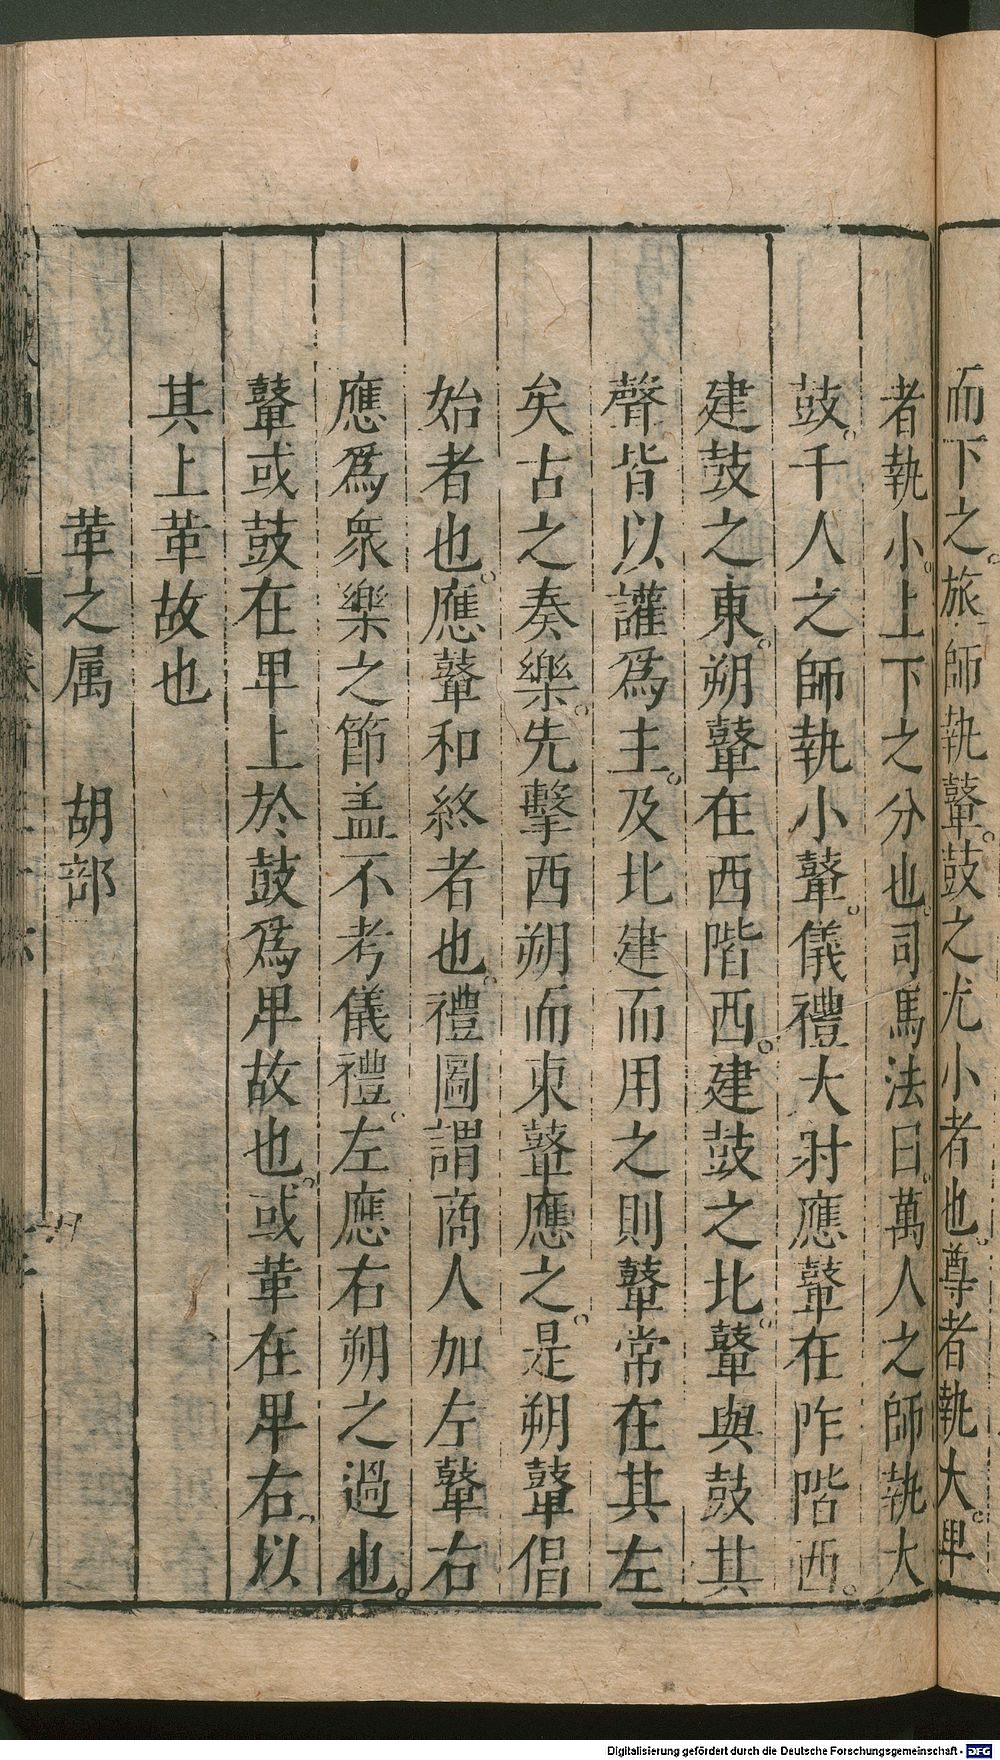 而下之旅師執鼙鼓之尤小者也尊者執大卑
者執小上下之分也司馬法曰萬人之師執大
鼓千人之師執小鼙儀禮大射應鼙在阼階西
建鼓之東朔鼙在西階西建鼓之北鼙與鼓其
聲皆以讙爲主及北建而用之則鼙常在其左
矣古之奏樂先擊西朔而東鼙應之是朔鼙倡
始者也應鼙和終者也禮圖謂商人加左鼙右
應爲衆樂之節盖不考儀禮左應右朔之過也
鼙或鼓在卑上於鼓爲卑故也或革在卑右以
其上革故也
革之属 胡部
Digitalisierung gefördert durch die Deutsche Forschungsgemeinschaft - DFG